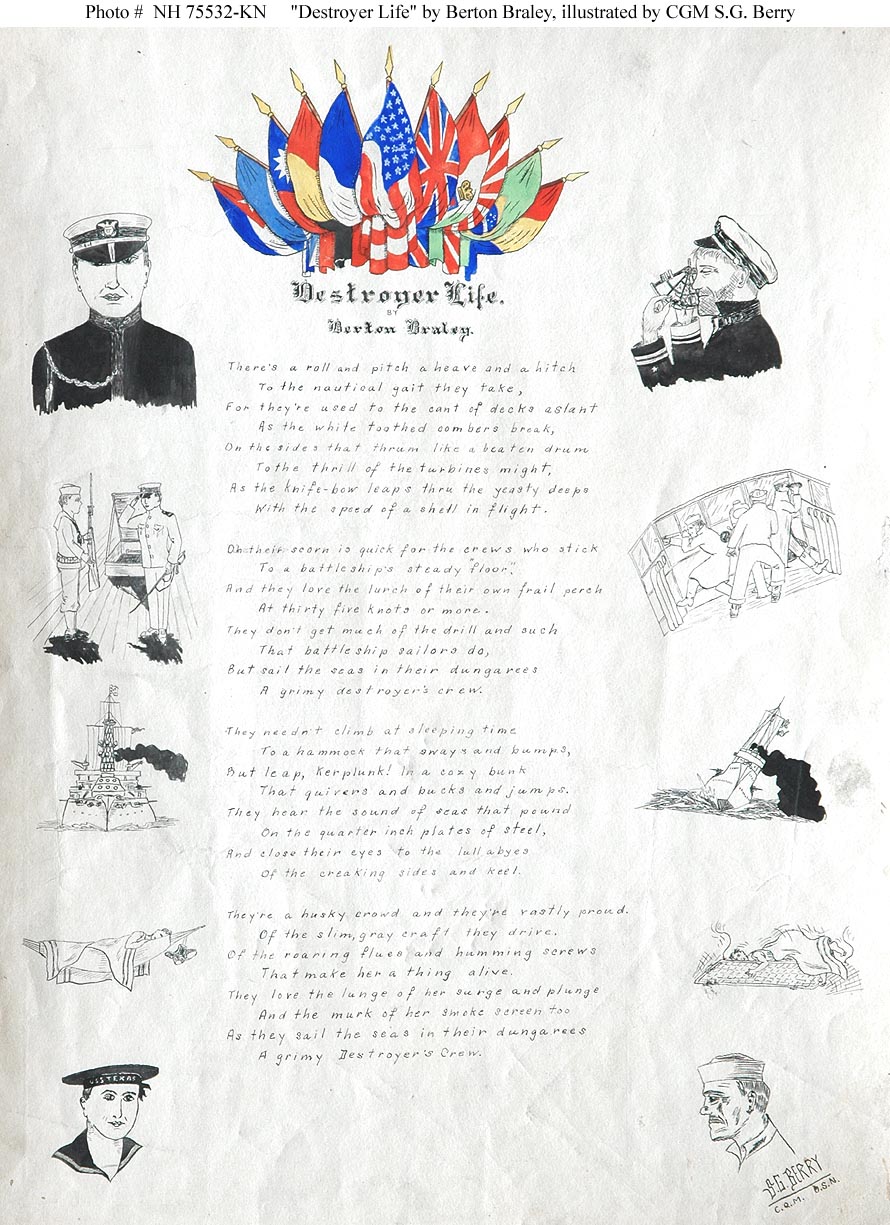 Photo # NH 75532-KN "Destroyer Life" by Berton Braley, illustrated by CGM S.G. Berry
Destroyer Life.
BY
Berton Braley.
There's a roll and pitch a heave and a hitch
To the nautical gait they take,
For they're used to the cant of decks aslant
As the white toothed combers break,
On the sides that thrum like a beaten drum
To the thrill of the turbines might,
As the knife-bow leaps thru the yeasty deeps
With the speed of a shell in flight.
Oh their scorn is quick for the crews who stick
To a battleship's steady "floor".
And they love the lurch of their own frail perch
At thirty five knots or more.
They don't get much of the drill and such
That battleship sailors do,
But sail the seas in their dungarees
A grimy destroyer's crew.
They needn't climb at sleeping time
To a hammock that sways and bumps,
But leap, Kerplunk! In a cozy bunk
That quivers and bucks and jumps.
They hear the sound of seas that pound
On the quarter inch plates of steel,
And close their eyes to the lullabyes
Of the creaking sides and keel.
They're a husky crowd and they're vastly proud.
Of the slim, gray craft they drive.
Of the roaring flues and humming screws
That make her a thing alive.
They love the lunge of her surge and plunge
And the murk of her smoke screen too
As they sail the seas in their dungarees
A grimy Destroyer's Crew.
USS TEXAS
S.G. BERRY
C.Q.M. U.S.N.